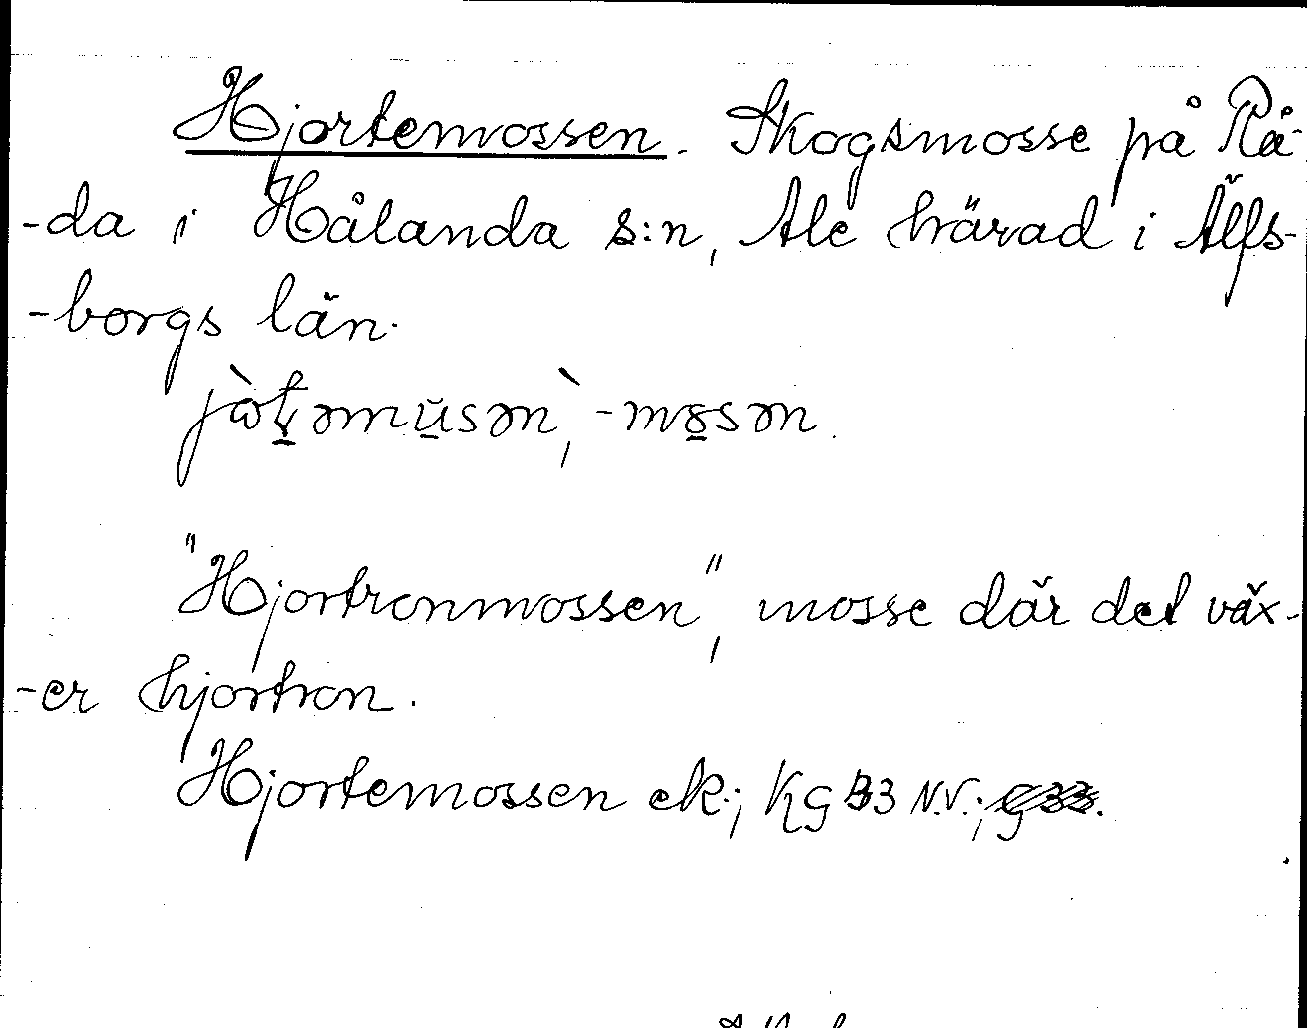 Hjortemossen. Skogsmosse på Rå-
-da i Hålanda s:n, Ale härad i Älfs-
-borgs län.
jàʈəmu̲sən`, -mo̲sən.
"Hjortronmossen", mosse där det väx-
-er hjortron.
Hjortemossen ek.; Kg 33 N.V.;